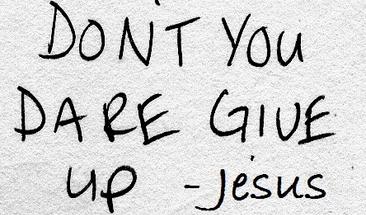 DON'T YOU
DARE GIVE
UP -Jesus